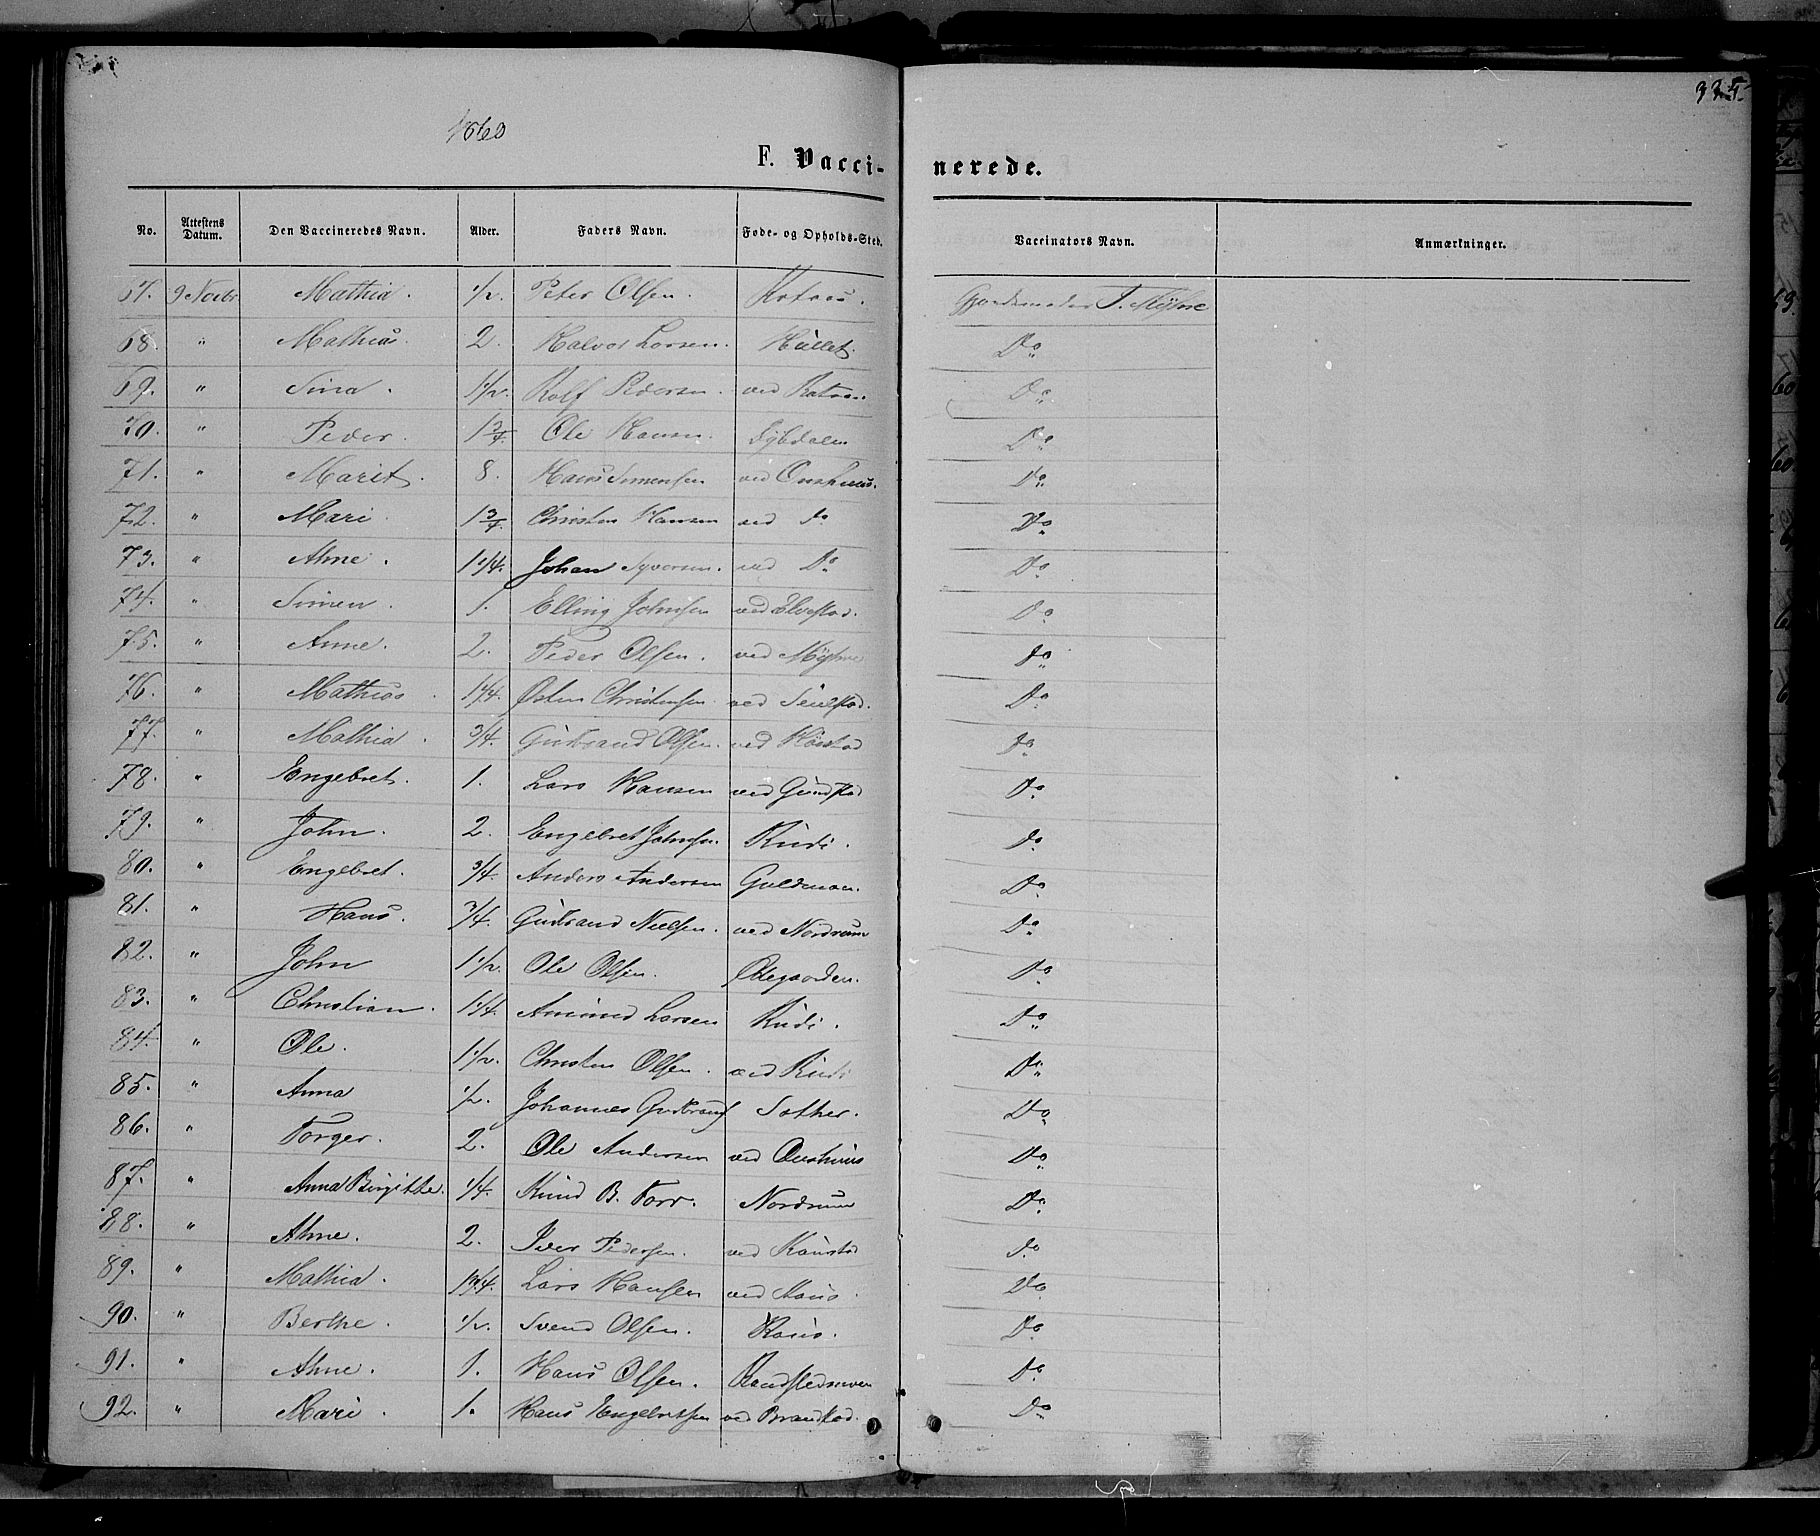 335.
1860
F. Vaccinerede.
No. Attestens Datum. Den Vaccineredes Navn. Alder. Faders Navn. Føde- og Opholds-Sted. Vaccinators Navn. Anmærkninger.
67. 9 Novbr Mathia. 1/2. Peter Olsen. Gjordemoder J. Myhre
68. " Mathias. 2. Halvor Larsen. Hullet. Do
69. " Sina. 1 1/2. Rolf Pedersen. ved Do
70. " Peder. 1 3/4. Ole Hansen. Dybdalen Do
71. " Marit. 8. Hans Simensen ved Onshuus. Do
72. " Mari. 1 3/4. Christen Hansen ved Do Do
73. " Ahne. 1 1/4. Johan Syversen. ved Do Do
74. " Simen. 1. Elling Johnsen ved Elvestad. Do
75. " Anne. 2. Peder Olsen. ved Myhre Do
76. " Mathias. 1 1/4. Østen Christensen. ved Do
77. " Mathia. 3/4. Gudbrand Olsen. ved Do
78. " Engebret. 1. Lars Hansen ved Gundstad Do
79. " John. 2. Engebret Johnsen. Rudi. Do
80. " Engebret. 3/4. Anders Andersen Guldmoen. Do
81. " Hans. 3/4. Gudbrand Nielsen. ved Nordrum Do
82. " John 1 1/2. Ole Olsen. Ødegaarden. Do
83. " Christian. 1 1/4. Amund Larsen Rudi. Do
84. " Ole. 1 1/2. Christen Olsen. ved Rudi Do
85. " Anna 1/2. Johannes Gudbrands Sother. Do
86. " Torger. 2. Ole Andersen ved Onshuus Do
87. " Anna Birgitte. 1/4. Knud B. Torr. Nordrum Do
88. " Ahne. 2. Iver Pedersen. ved Do
89. " Mathia. 1 3/4. Lars Hansen ved Do
90. " Berthe. 1/2. Svend Olsen. Do
91. " Ahne. 1. Hans Olsen. Do
92. " Mari. 1. Hans Engebretsen ved Brandstad. Do